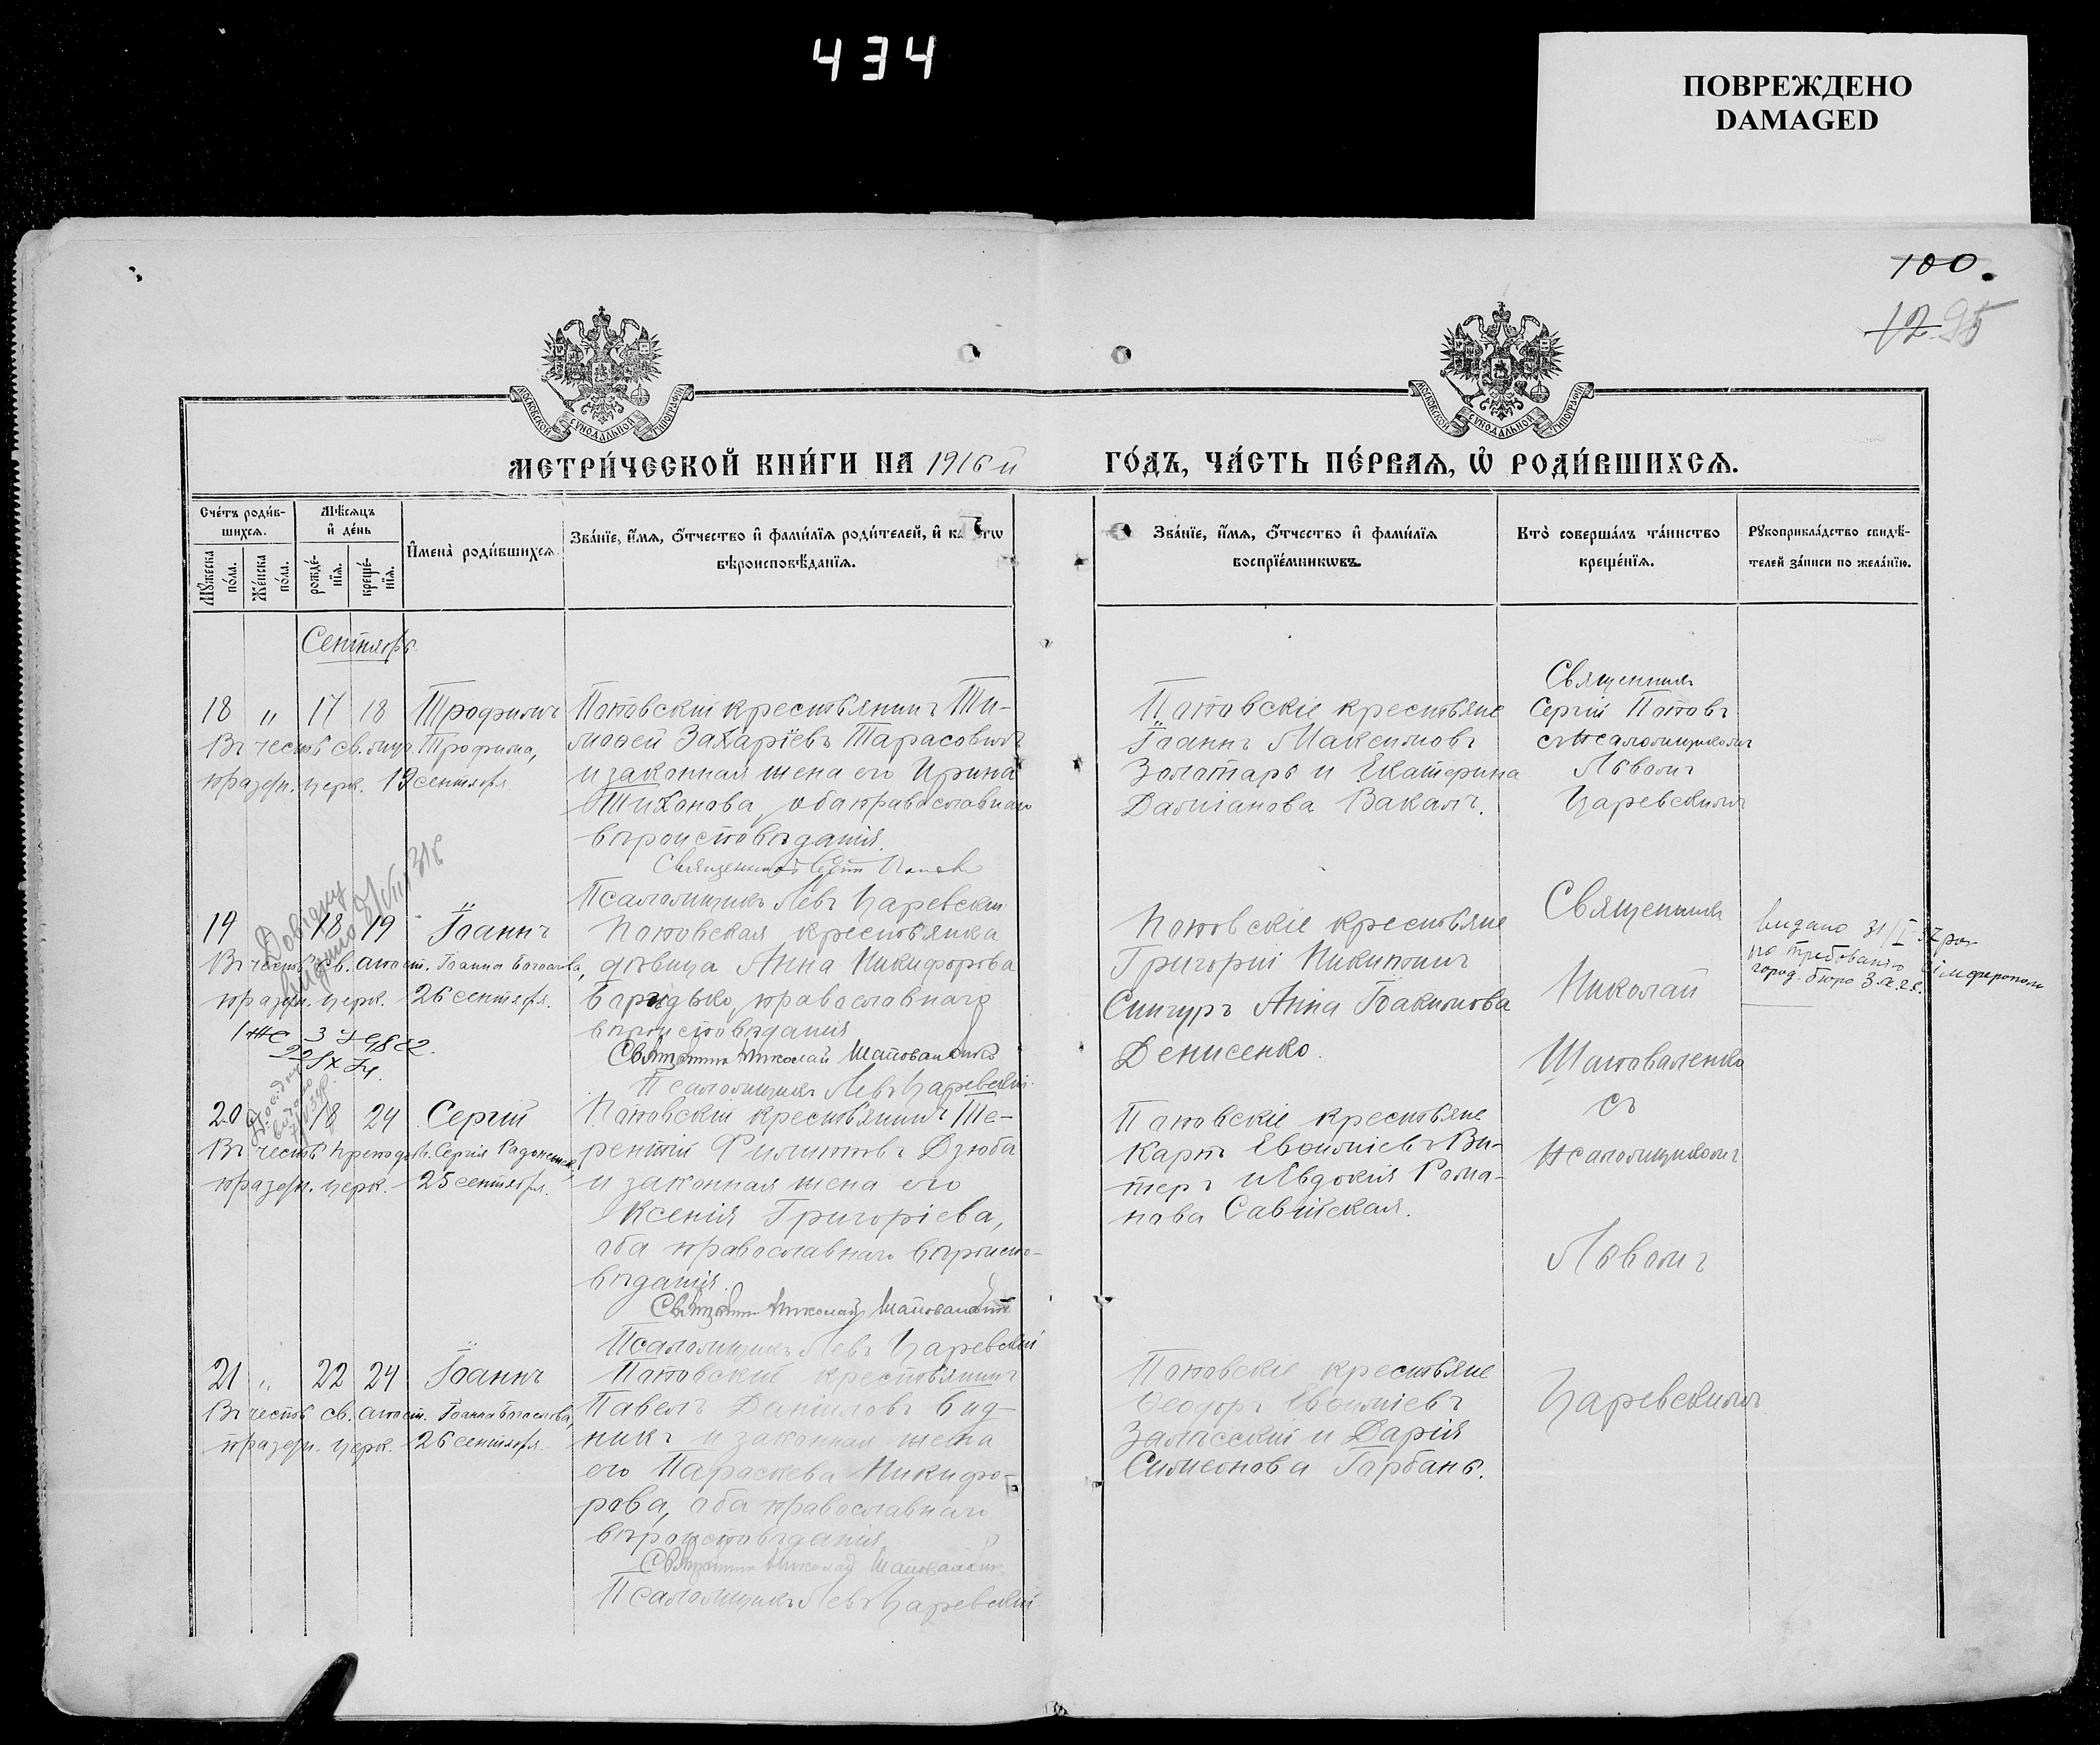 434
ПОВРЕЖДЕНО
DAMAGED
100.
12 95
МОСКОВСКОЙ СѴНОДАЛЬНОЙ ТИПОГРАФІИ
МОСКОВСКОЙ СѴНОДАЛЬНОЙ ТИПОГРАФІИ
МЕТРИ́ЧЕСКОЙ КНИ́ГИ НА 1916й ГО́ДЪ, ЧА́СТЬ ПЕ́РВАЯ, Ѡ РОДИ́ВШИХСЯ.
Сче́тъ роди́в-
шихся.
Мꙋжеска по́ла.
Же́нска по́ла.
Мѣ́сяцъ
и҆ де́нь
рожде́-
нїя.
креще́-
нїя.
И҆мена̀ роди́вшихся
Зва́нїе, и҆́мя, ѻ҆́тчество и҆ фами́лїя роди́телей, и҆
вѣроисповѣ́данїя.
Зва́нїе, и҆́мя, ѻ҆́тчество и҆ фами́лїя
воспрїе́мникѡвъ.
Кто̀ соверша́лъ та́инство
креще́нїя.
Рꙋкоприкла́дство свидѣ́-
телей за́писи по жела́нїю.
Сентябрь
18 „ 17 18 Трофимъ
Въ честь св. муч. Трофима,
праздн. церк. 19 сентября
Поповскій крестьянинъ Ти-
моѳей Захаріевъ Тарасовъ
и законная жена его Ирина
Тихонова, оба православнаго
вѣроисповѣданія.
Священникъ Сергій Поповъ
Псаломщикъ Левъ Царевскій
Поповскіе крестьяне
Іоаннъ Максимовъ
Золотарь и Екатерина
Даміанова Вакалъ.
Священникъ
Сергій Поповъ
съ псаломщикомъ
Львомъ
Царевскимъ
Довідку
видано
19 18 19 Іоаннъ
Въ честь св. апост. Іоанна Богослова,
праздн. церк. 26 сентября.
Поповская крестьянка
дѣвица Анна Никифорова
православнаго
вѣроисповѣданія
Священникъ Николай Шаповаленко
Псаломщикъ Левъ Царевскій.
Поповскіе крестьяне
Григорій
Сингуръ Анна Іоакимова
Денисенко.
Священникъ
Николай
Шаповаленко
съ
псаломщикомъ
Львомъ
Царевскимъ
видано 31/I
по требованію
город. бюро З.а.г.с.
20 18 24 Сергій
Въ честь преподоб. Сергія Радонежск.,
праздн. церк. 25 сентября.
Поповскій крестьянинъ Те-
рентій Филипповъ Дзюба
и законная жена его
Ксенія Григоріева,
оба православнаго вѣроиспо-
вѣданія.
Священникъ Николай Шаповаленко
Псаломщикъ Левъ Царевскій
Поповскіе крестьяне
Карпъ Евѳиміевъ Ви-
теръ и Евдокія Рома-
нова Савійская.
21 „ 22 24 Іоаннъ
Въ честь св. апост. Іоанна Богослова,
праздн. церк. 26 сентября.
Поповскій крестьянинъ
Павелъ Даніиловъ Бид-
никъ и законная жена
его Параскева Никифо-
рова, оба православнаго
вѣроисповѣданія
Священникъ Николай Шаповаленко
Псаломщикъ Левъ Царевскій
Поповскіе крестьяне
Ѳеодоръ Евѳиміевъ
Залѣсскій и Дарія
Симеонова Горбань.